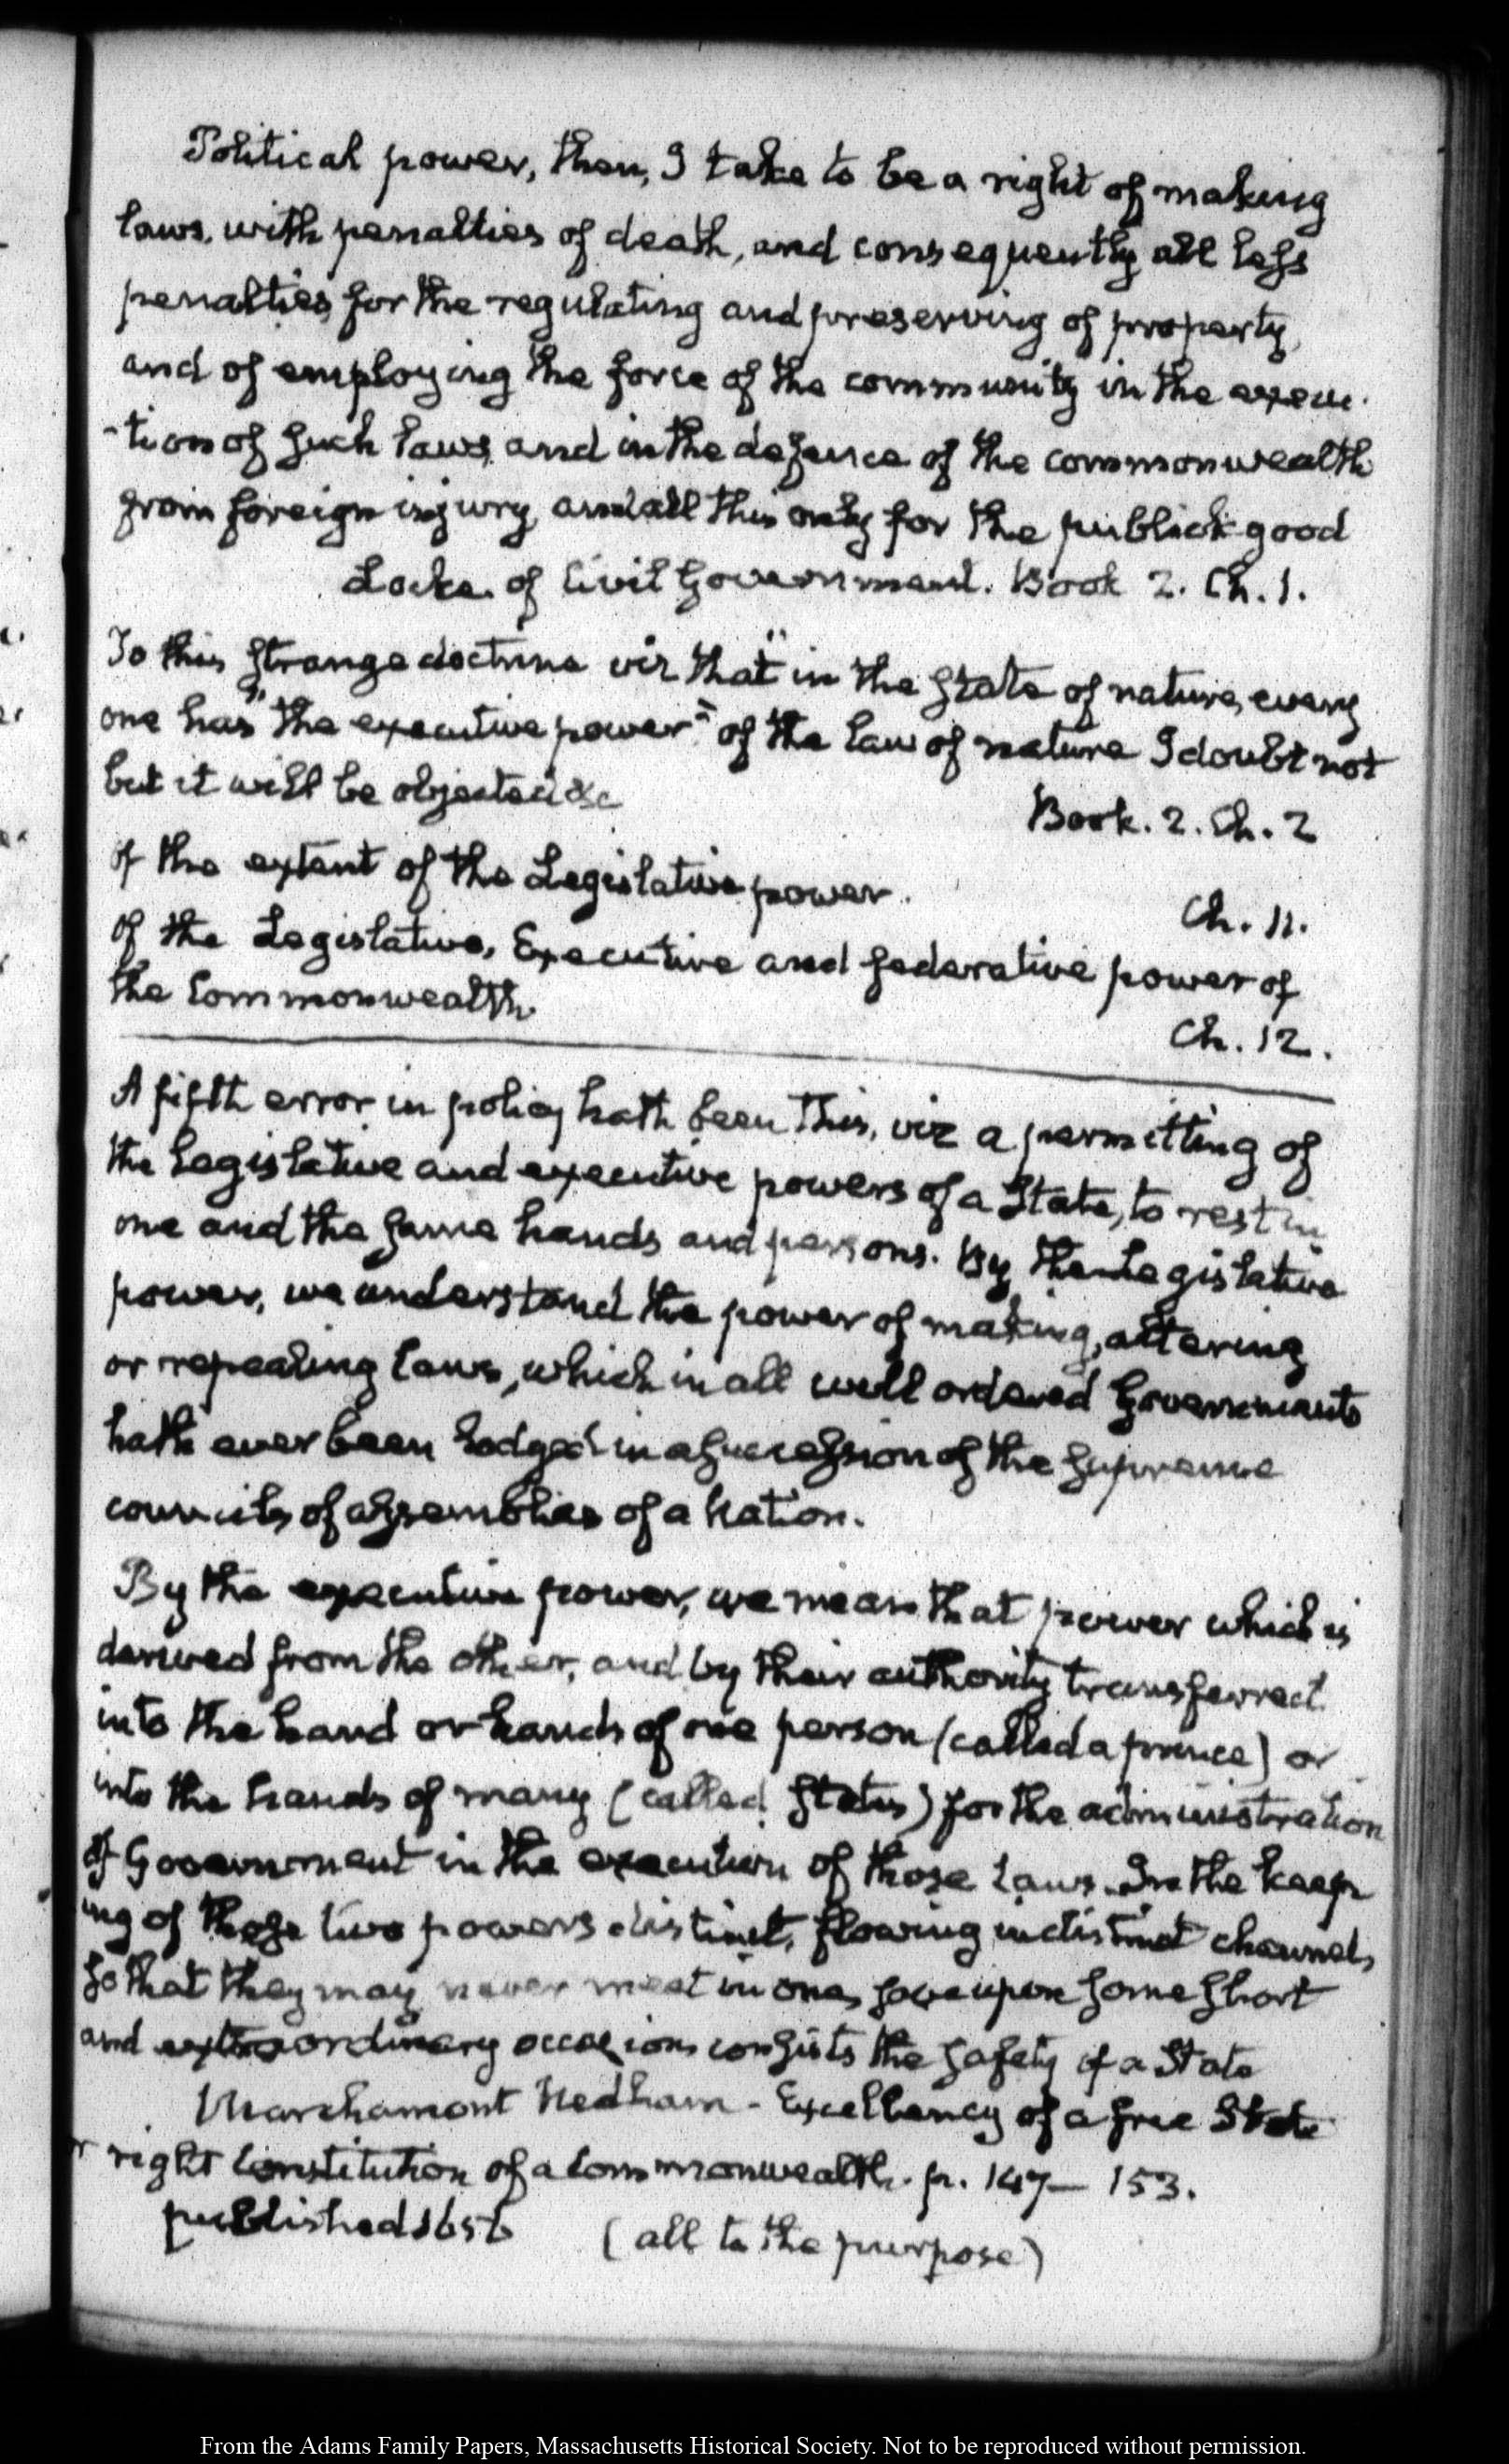 Political power, then, I take to be a right of making
laws, with penalties of death, and consequently all less
penalties for the regulating and preserving of property,
and of employing the force of the community in the execu-
-tion of such laws, and in the defence of the commonwealth
from foreign injury, and all this only for the publick good
Locke. of Civil Government. Book 2. Ch. 1.
To this strange doctrine viz that "in the state of nature, every
one has "the executive power" of the law of nature I doubt not
but it will be objected &c
Book. 2. Ch. 2
of the extent of the Legislative power.
Ch. 11.
Of the Legislative, Executive and federative power of
the Commonwealth
Ch. 12.
A fifth error in policy hath been this, viz a permitting of
the Legislative and executive powers of a State, to rest in
one and the same hands and persons. By the Legislative
power, we understand the power of making, altering
or repealing laws, which in all well ordered Governments
hath ever been lodged in a succession of the supreme
councils of assemblies of a Nation.
By the executive power, we mean that power which is
derived from the other, and by their authority transferred
into the hand or hands of one person (called a prince) or
into the hands of many (called States) for the administration
of Government in the execution of those Laws. In the keep
ing of these two powers distinct, flowing in distinct channels
so that they may never meet in one, save upon some short
and extraordinary occasion consists the safety of a State
Marchamont Nedham - Excellency of a free State
or right Constitution of a Commonwealth. p. 147- 153.
published 1656 (all to the purpose)
From the Adams Family Papers, Massachusetts Historical Society. Not to be reproduced without permission.